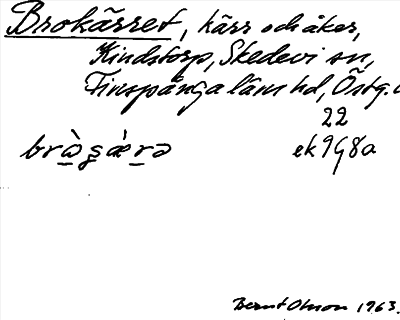 Brokärret, kärr och åker,
Kindstorp, Skedevi sn,
Finspånga läns hd, Östg.
22
ek 9G8a
Bernt Olsson 1963.